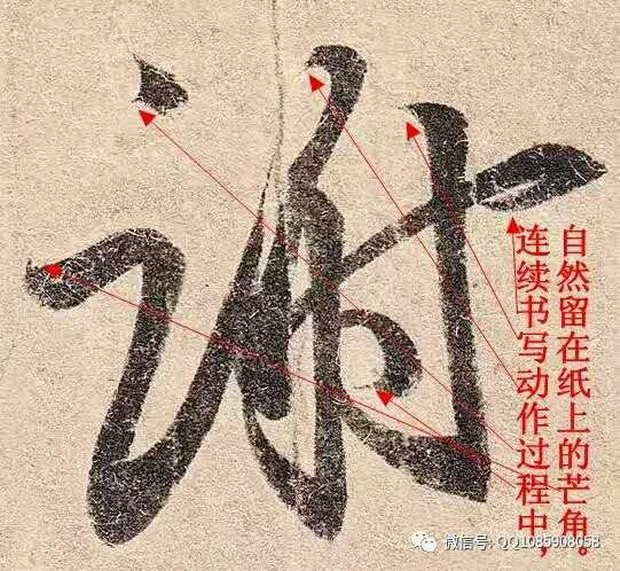 謝
连续书写动作过程中，
自然留在纸上的芒角。
微信号: QQ1085908058